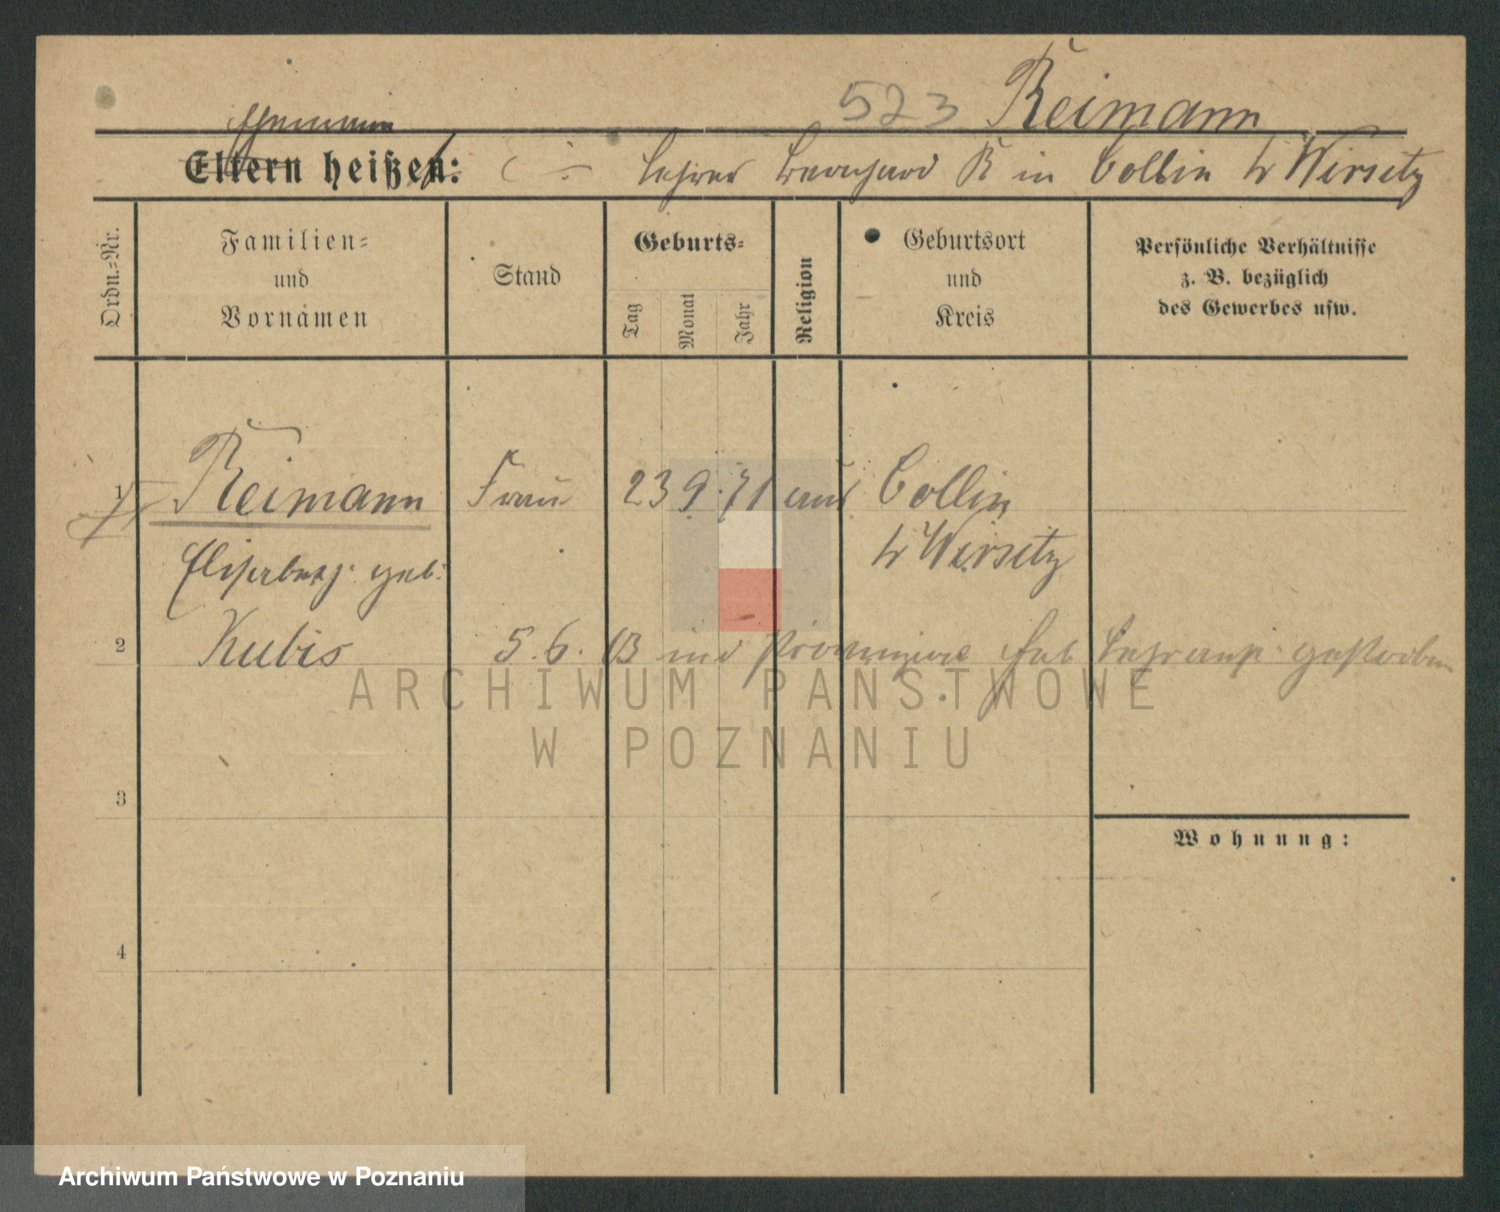 523 Reimann
Ehemann
Eltern heißen: Lehrer Bernhard R in Collin Kr Wirsitz
Ordn.=Nr.
Familien=
und
Vornamen
Stand
Geburts=
Tag
Monat
Jahr
Religion
Geburtsort
und
Kreis
Persönliche Verhältnisse
z. B. bezüglich
des Gewerbes usw.
1 Reimann Frau 23 9. 71 aus Collin
Kr Wirsitz
Elisabeth geb.
2 Kubis 5. 6. 13 gestorben
3
Wohnung:
4
ARCHIWUM PAŃSTWOWE
W POZNANIU
Archiwum Państwowe w Poznaniu